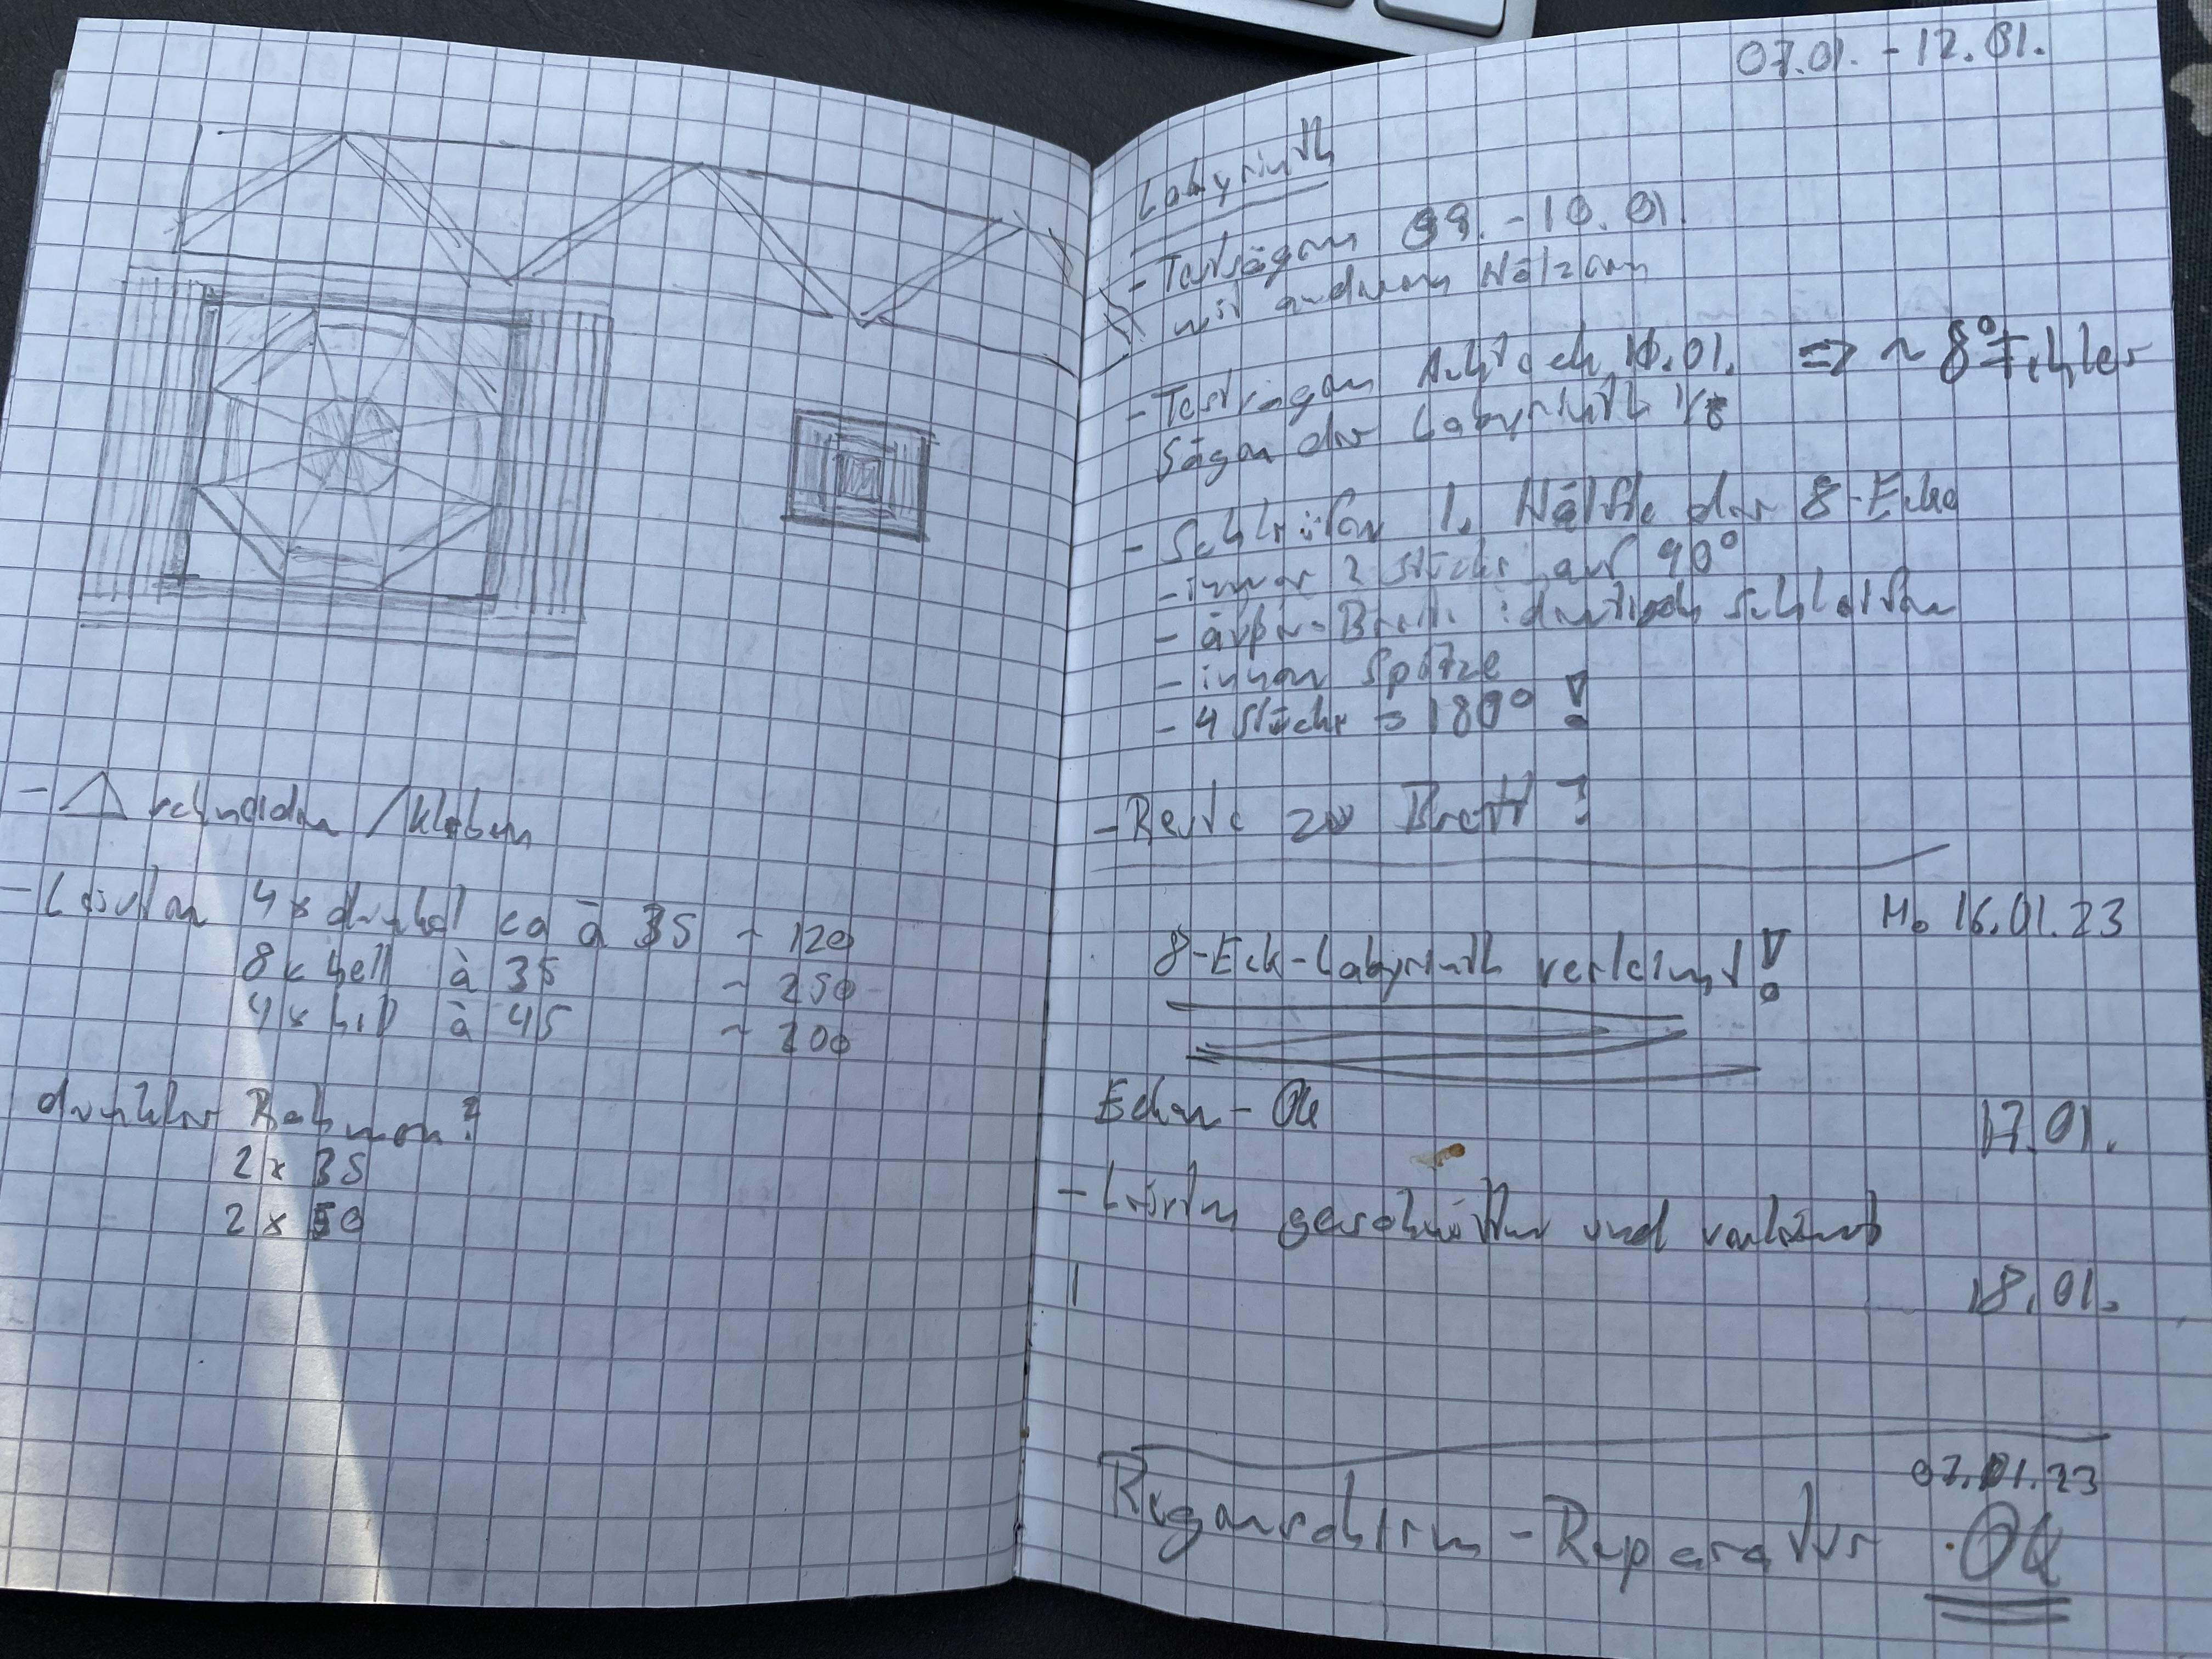 - △ schneiden / kleben
- Leisten 4x dunkel ca à 35 ~ 120
8x hell à 35 ~ 250
4x hell à 45 ~ 200
dunkler Rahmen?
2 x 35
2 x 50
07.01. - 12.01.
Labyrinth
- Testsägen 09. - 10. 01.
mit anderen Hölzern
- Testsägen Achteck 10.01. => ~ 8° Fehler
Sägen der Labyrinth 1/8
- Schleifen 1. Hälfte der 8-Ecke
- immer 2 Stücke auf 90°
- äußere Breite identisch schleifen
- innen Spitze
- 4 Stücke = 180° !
- Reste zu Brett ?
Mo 16.01.23
8-Eck-Labyrinth verleimt!
Ecken - Ok
17.01.
- Leisten geschnitten und verleimt
18.01.
07.01.23
Regenschirm - Reparatur OK